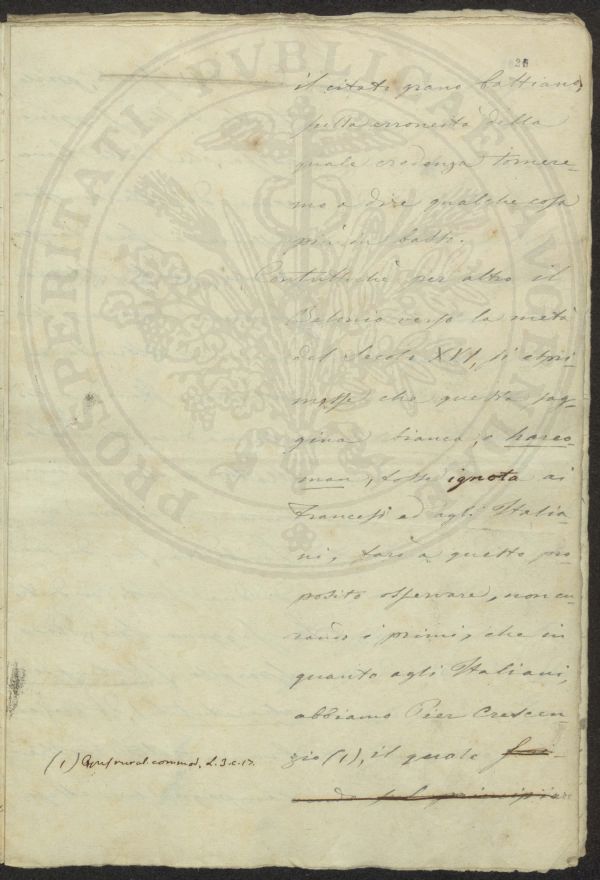 26
il citato grano battiano,
sulla erroneità della
quale credenza tornere-
mo a dire qualche cosa
più in basso.
Contuttochè per altro il
Belonio verso la metà
del Secolo XVI, si espri-
messe che questa sag-
gina bianca, o hareo-
man, fosse ignota ai
Francesi ed agli Italia-
ni, farò a questo pro-
posito osservare, noncu-
rando i primi, che in
quanto agli Italiani,
abbiamo Pier Crescen-
zio (1), il quale
(1) rural. commod. L. 3. c. 17.
PROSPERITATI PVBLICAE AVGENDAE